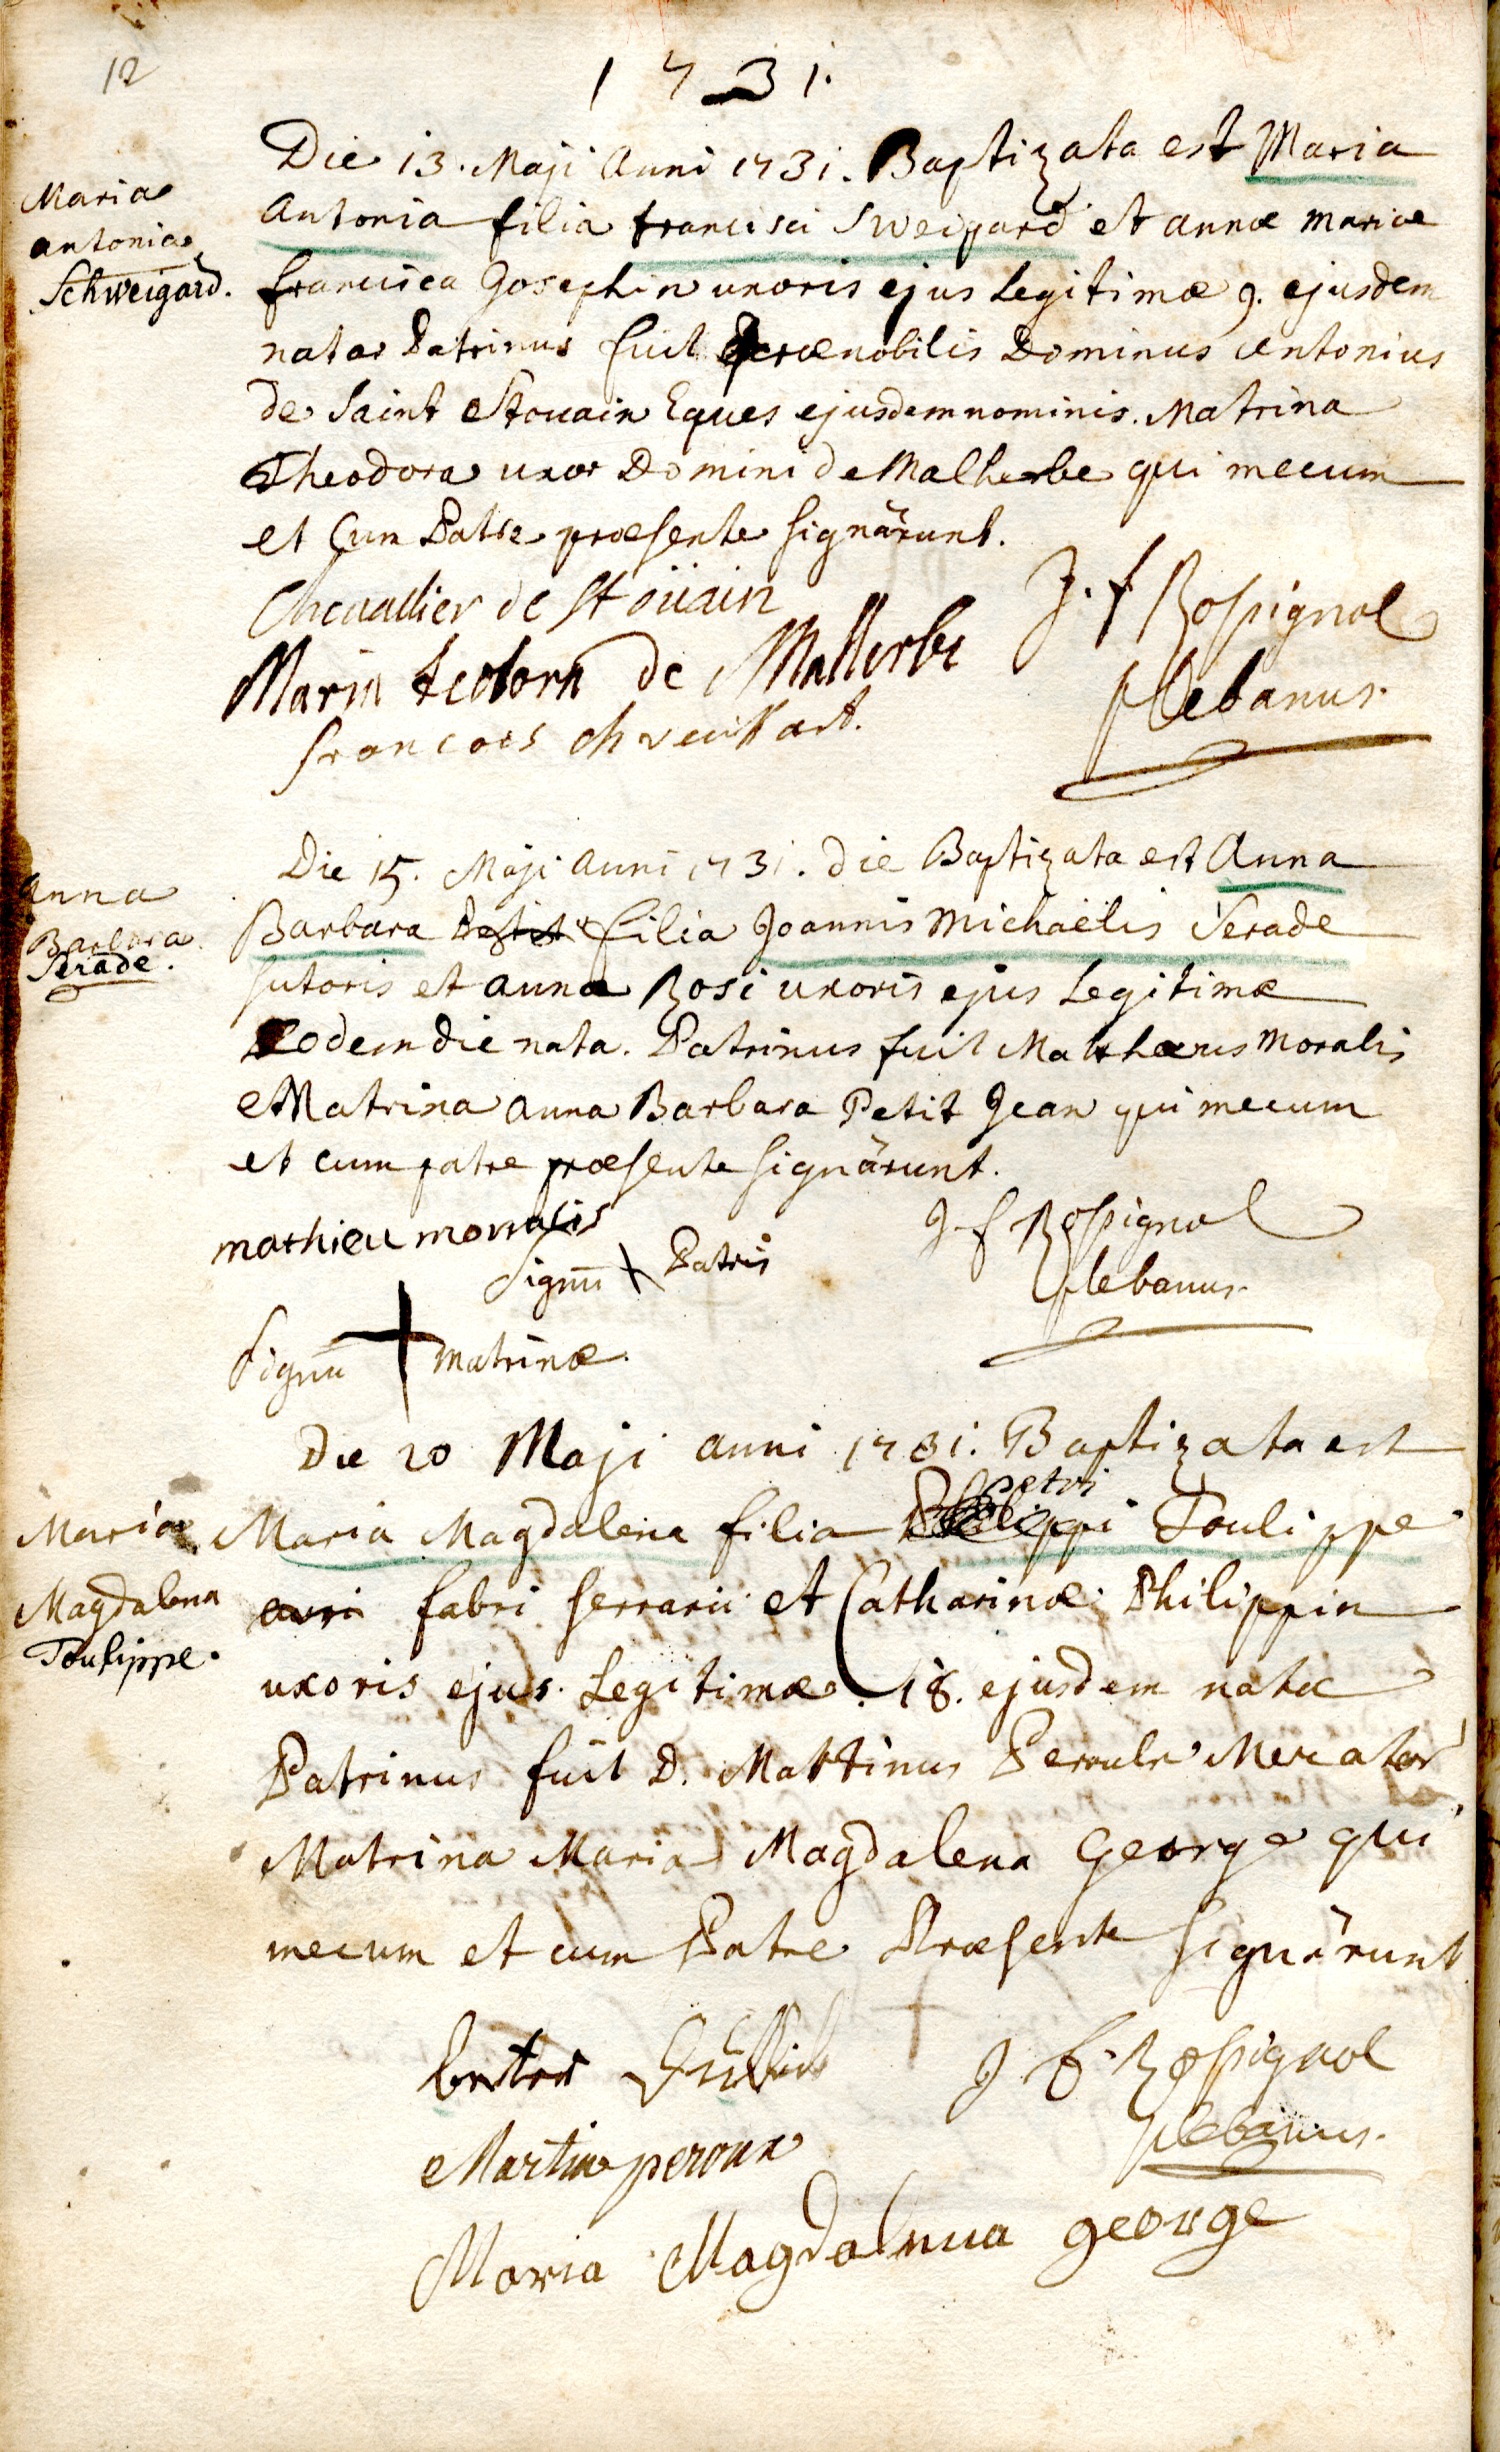 12
1731.
Maria
antonia
Schweigard.
Die 13. Maji Anni 1731. Baptizata est Maria
Antonia filia francisci Sweigard et annæ mariæ
francisca Josephin uxoris ejus Legitimæ 9. ejusdem
nata Patrinus fuit prænobilis Dominus Antonius
de Saint Stouain Eques ejusdem nominis. Matrina
Theodora uxor Domini de Malherbe qui mecum
et Cum Patre præsente signârunt.
Chevallier de St oüain
J. f Rospignol
Maria teodora de Mallerbe
plebanus.
francois
Anna
Barbara
Serade.
Die 15. Maji Anni 1731. die Baptizata est Anna
Barbara filia Joannis Michaëlis Serade
sutoris et anna Rosi uxoris ejus Legitimæ
Eodem die nata. Patrinus fuit Mathæus Moralis
Matrina anna Barbara Petit Jean qui mecum
et cum patre præsente signârunt.
mathieu morralis
J f Rospignol
Signū + Patris
plebanus.
Signū + matrinæ.
Maria
Magdalena
Toulippe.
Die 20 Maji anni 1731. Baptizata est
petri
Maria Magdalena filia Philippi Toulippe
fabri ferrarii et Catharinæ Philippin
uxoris ejus Legitimæ. 18. ejusdem nata
Patrinus fuit D. Martinus Mercator
Matrina Maria Magdalena George qui
mecum et cum Patre Præsente signârunt
J f. Rospignol
Martin peroux
plebanus.
Maria Magdalena george